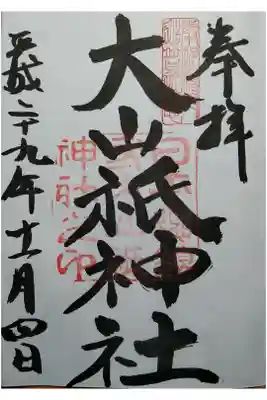 奉拝
大山祇神社
平成二十九年十一月四日